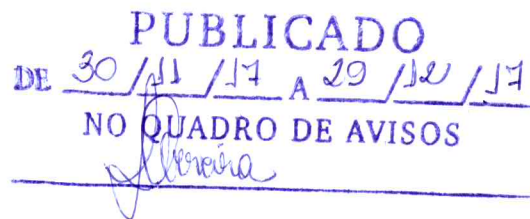 PUBLICADO
DE 30/11/17 A 29/12/17
NO QUADRO DE AVISOS